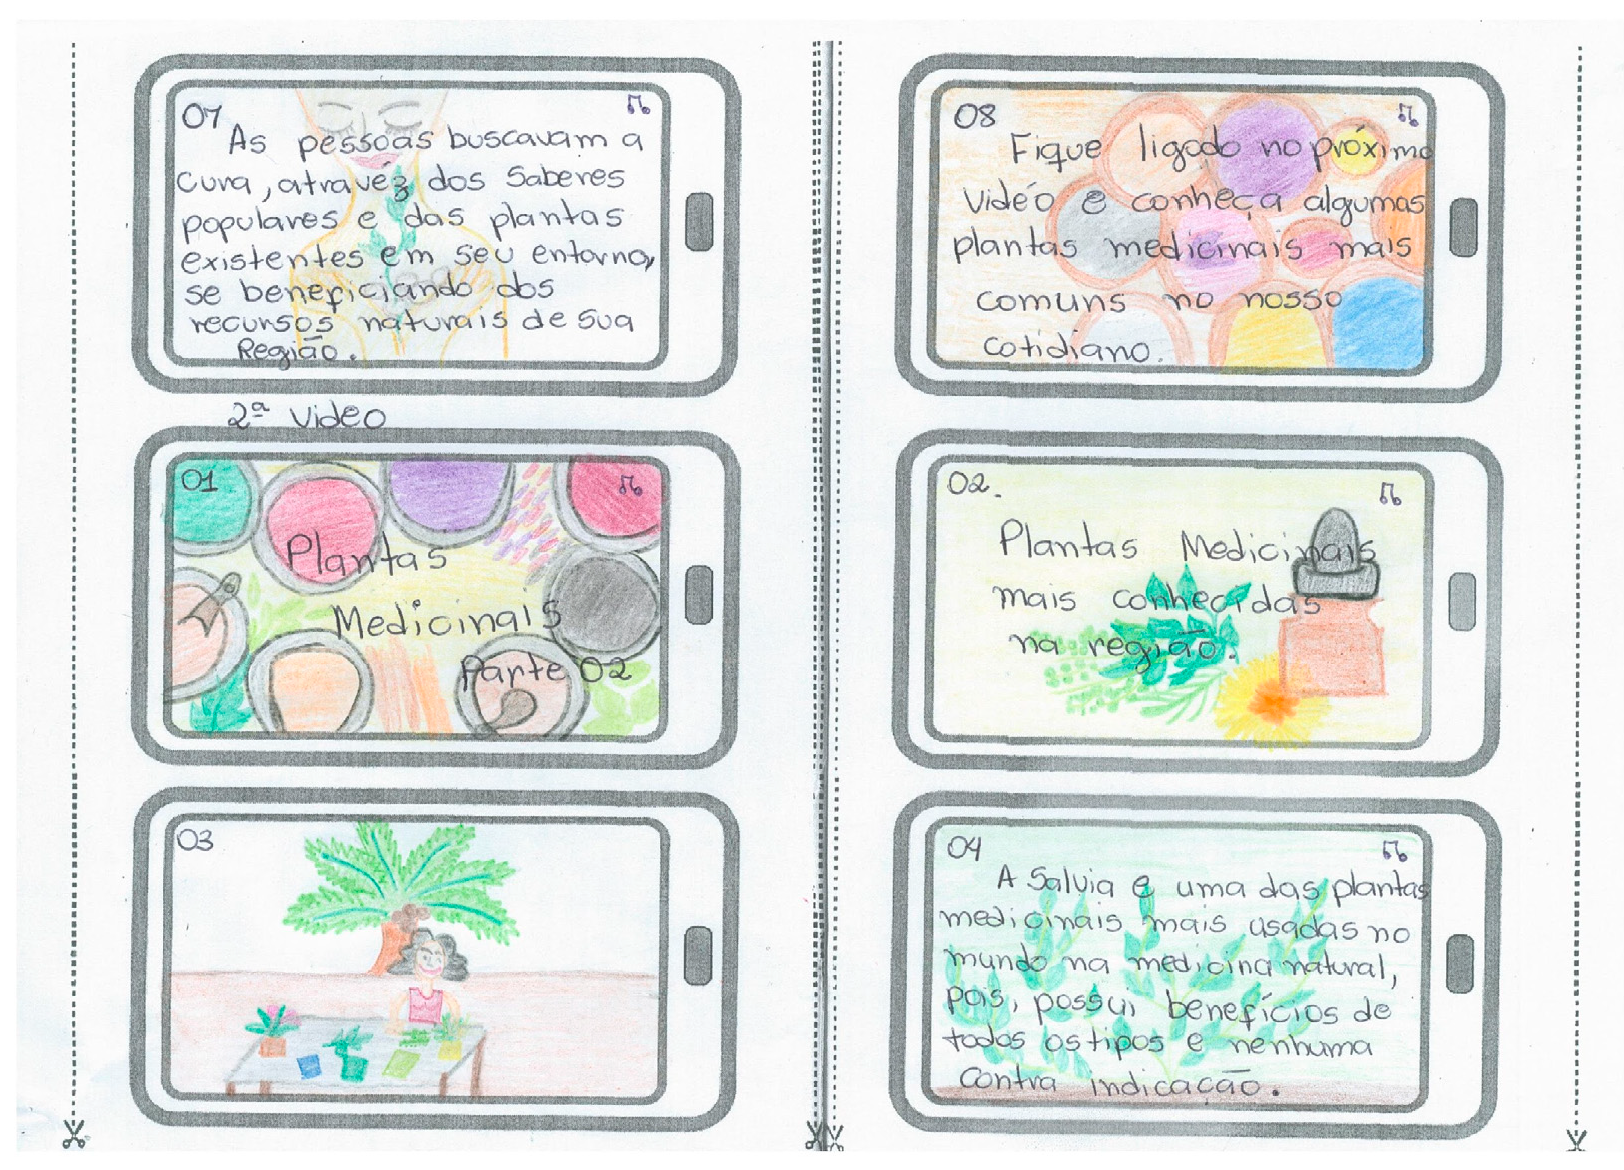 07
As pessoas buscavam a
cura, atravéz dos Saberes
populares e das plantas
existentes em seu entorno,
se beneficiando dos
recursos naturais de sua
Região.
08
Fique ligado no próximo
vidéo e conheça algumas
plantas medicinais mais
comuns no nosso
cotidiano.
2ª video
01
Plantas
Medicinais
Parte 02
02.
Plantas Medicinais
mais conhecidas
na região.
03
04
A Salvia e uma das plantas
medicinais mais usadas no
mundo na medicina natural,
pois, possui benefícios de
todos os tipos e nenhuma
contra indicação.